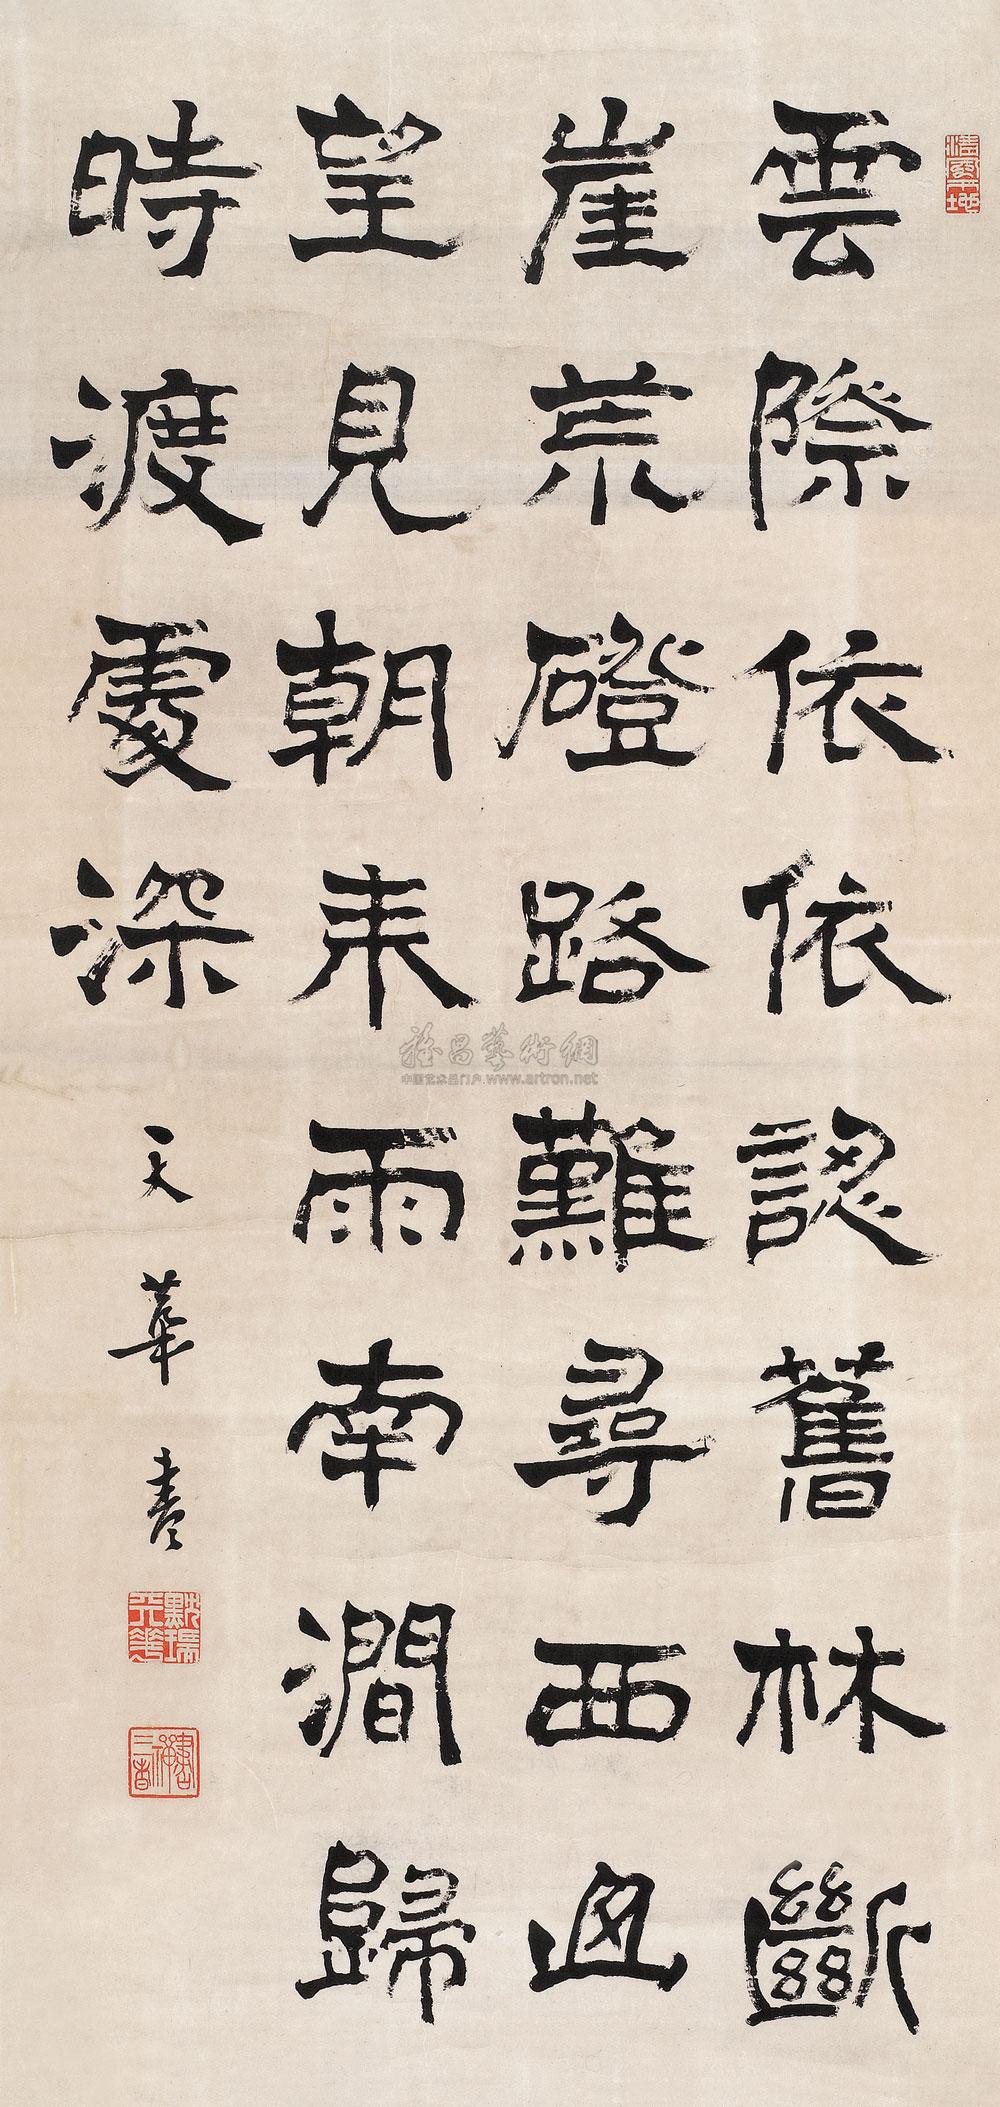 雲際依依認舊林斷
崖荒磴路難尋西山
望見朝來雨南澗歸
時渡處深
天華書
雅昌藝術網
中国艺术品门户 www.artron.net